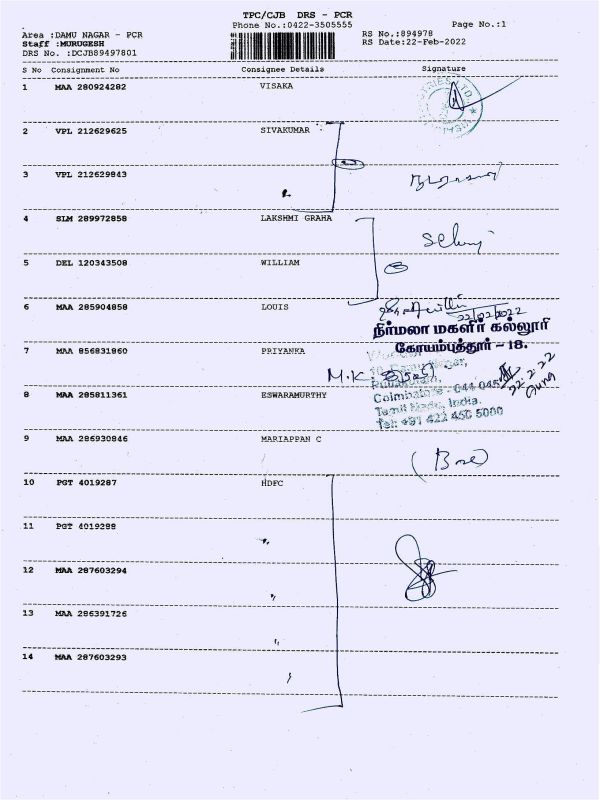 TPC/CJB DRS - PCR
Phone No.:0422-3505555
Page No.:1
Area :DAMU NAGAR - PCR
RS No.:894978
Staff :MURUGESH
RS Date:22-Feb-2022
DRS No. :DCJB89497801
S No Consignment No Consignee Details Signature
1 MAA 280924282 VISAKA
2 VPL 212629625 SIVAKUMAR
3 VPL 212629843
4 SLM 289972858 LAKSHMI GRAHA
5 DEL 120343508 WILLIAM
6 MAA 285904858 LOUIS
22/02/2022
நிர்மலா மகளிர் கல்லூரி
கோயம்புத்தூர் - 18.
7 MAA 856831860 PRIYANKA
M.K.
22.2.22
Coimbatore - 641 045
8 MAA 285811361 ESWARAMURTHY
Tamil Nadu, India.
Tel: +91 422 450 5000
9 MAA 286930846 MARIAPPAN C
10 PGT 4019287 HDFC
11 PGT 4019288
12 MAA 287603294
13 MAA 286391726
14 MAA 287603293